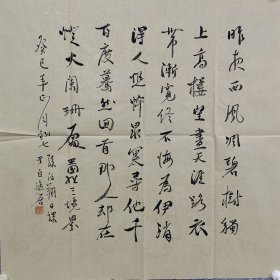 昨夜西風凋碧樹獨
上高樓望盡天涯路衣
帶漸寬終不悔為伊消
得人憔悴眾里尋他千
百度驀然回首那人却在
燈火闌珊處 三境界
癸巳年正月初七